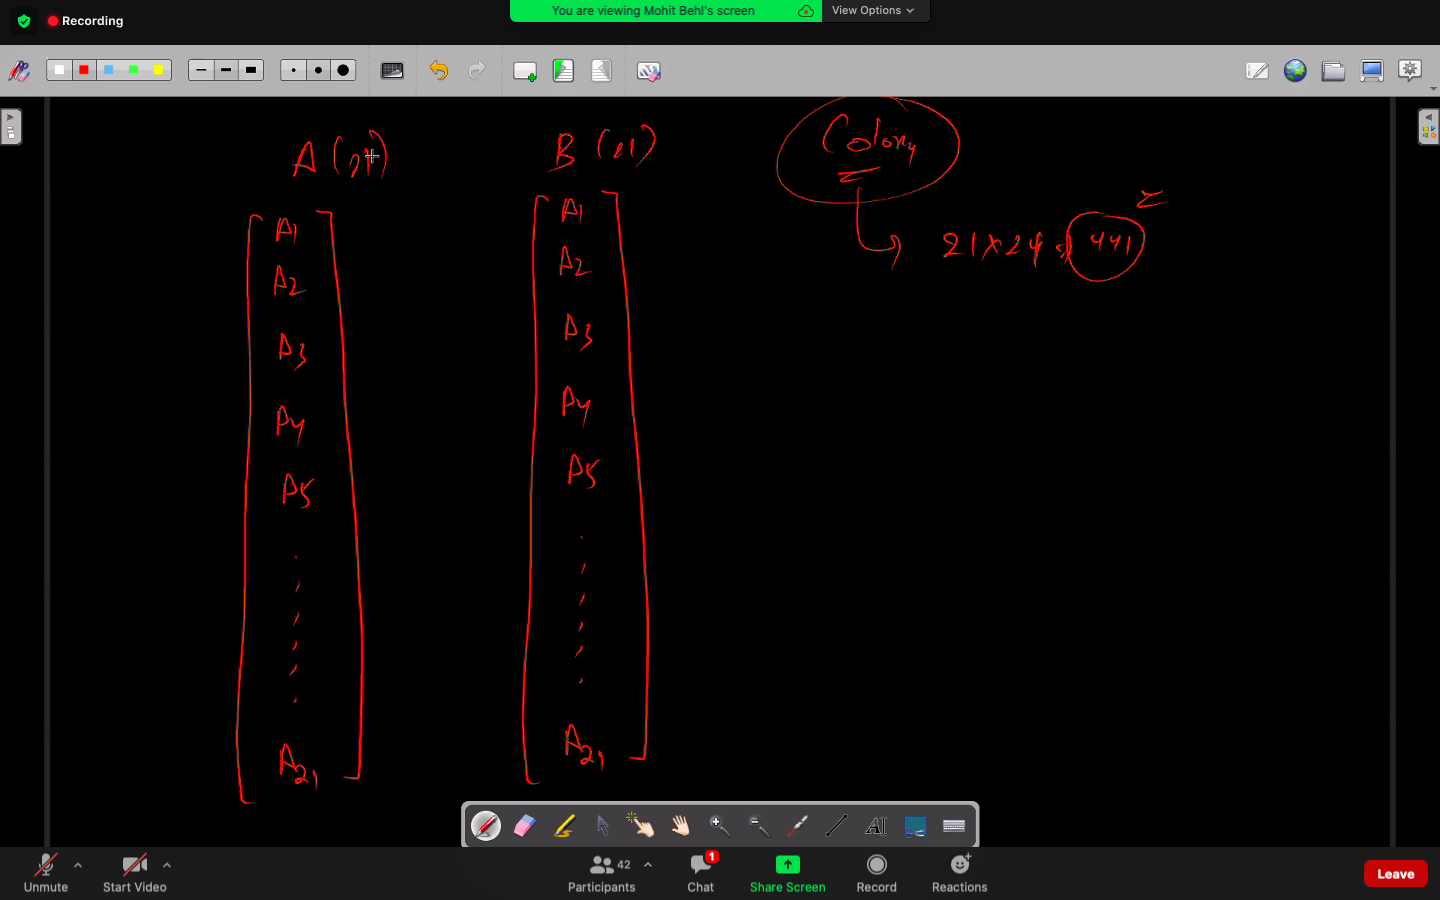 Recording
You are viewing Mohit Behl's screen
View Options
A (21)
B (21)
Colors
A1
A2
A3
A4
A5
A21
A1
A2
A3
A4
A5
A21
21 x 21 = 441
AI
Unmute
Start Video
Participants
42
Chat
1
Share Screen
Record
Reactions
Leave